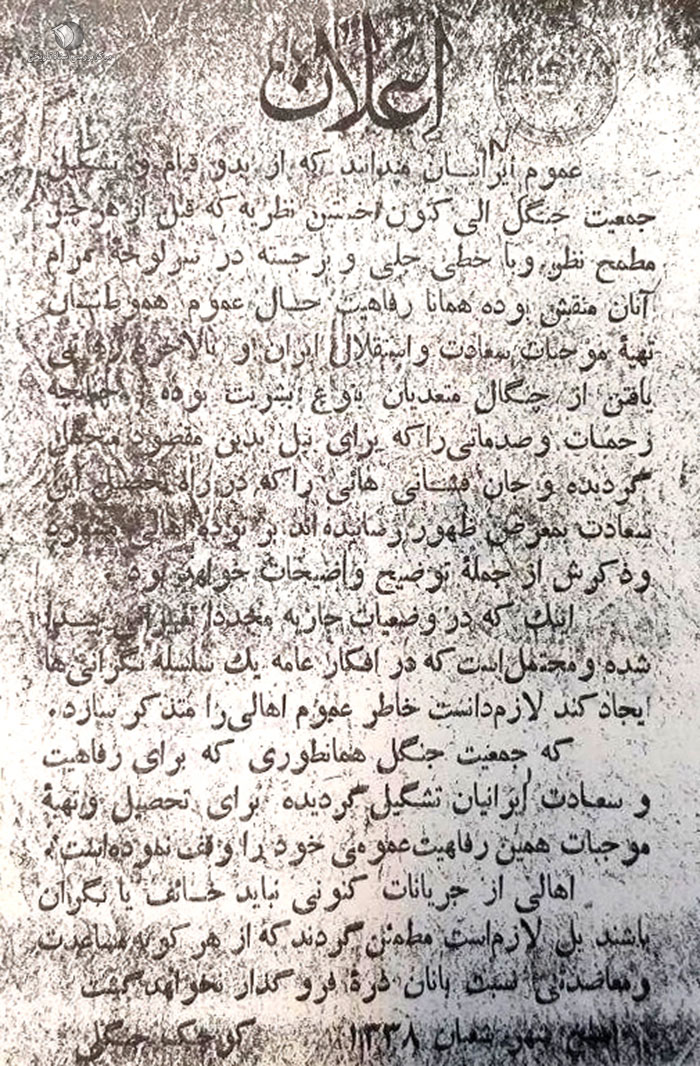 اعلان
عموم ایرانیان میدانند که از بدو قیام و تشکیل
جمعیت جنگل الی کنون نخستین نظریه که قبل از هر چیز
مطمح نظر و با خطی جلی و برجسته در سرلوحهٔ مرام
آنان منقش بوده همانا رفاهیت حال عموم هموطنان
تهیهٔ موجبات سعادت و استقلال ایران و بالاخره رهایی
یافتن از چنگال متعدیان بنوع بشریت بوده چنانچه
زحمات و صدماتی را که برای نیل بدین مقصود متحمل
گردیده و جان فشانی هائی را که در راه تحصیل این
سعادت بمعرض ظهور رسانیده اند بر تودهٔ اهالی
وذکرش از جملهٔ توضیح واضیحات خواهد بود .
اینك که در وضعیات جاریه مجددا تغییراتی پیدا
شده و محتمل است که در افکار عامه یك سلسله نگرانی ها
ایجاد کند لازم دانست خاطر عموم اهالی را متذکر سازد .
که جمعیت جنگل همانطوری که برای رفاهیت
و سعادت ایرانیان تشگیل گردیده برای تحصیل و تهیهٔ
موجبات همین رفاهیت عمومی خود را وقف نموده است .
اهالی از جریانات کنونی نباید خائف یا نگران
باشند بل لازم است مطمئن گردند که از هر گونه مساعدت
و معاضدتی نسبت بآنان ذرهٔ فرو گذار نخواهد گشت
شهر شعبان ۱۳۳۸ کوچك جنگلی